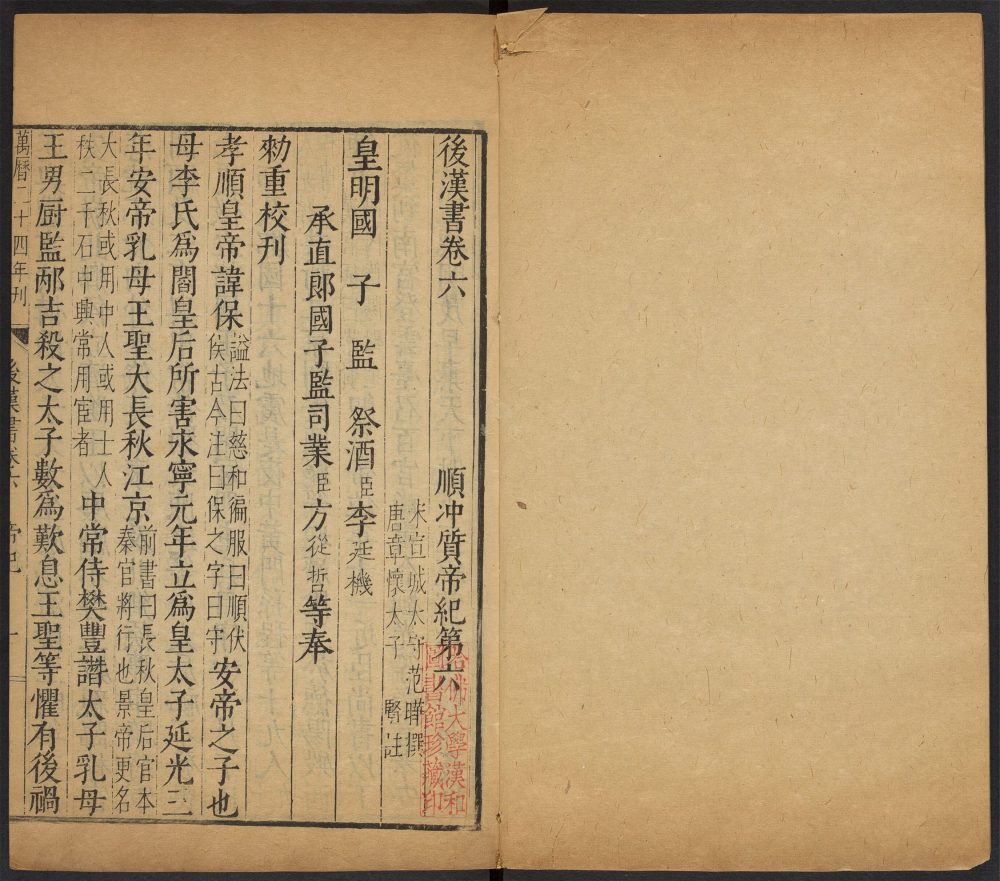 後漢書卷六 順冲質帝紀第六
宋宣城太守范曄撰
唐章懷太子賢註
皇明國子監祭酒臣李廷機
承直郎國子監司業臣方從哲等奉
勑重校刊
孝順皇帝諱保謚法曰慈和徧服曰順伏侯古今注曰保之字曰守安帝之子也
母李氏爲閻皇后所害永寧元年立爲皇太子延光三
年安帝乳母王聖大長秋江京前書曰長秋皇后官本秦官將行也景帝更名
大長秋或用中人或用士人秩二千石中興常用宦者中常侍樊豐譖太子乳母
王男厨監邴吉殺之太子數爲歎息王聖等懼有後禍
萬曆二十四年刊
後漢書卷六 帝紀 一
哈佛大學漢和圖書館珍藏印